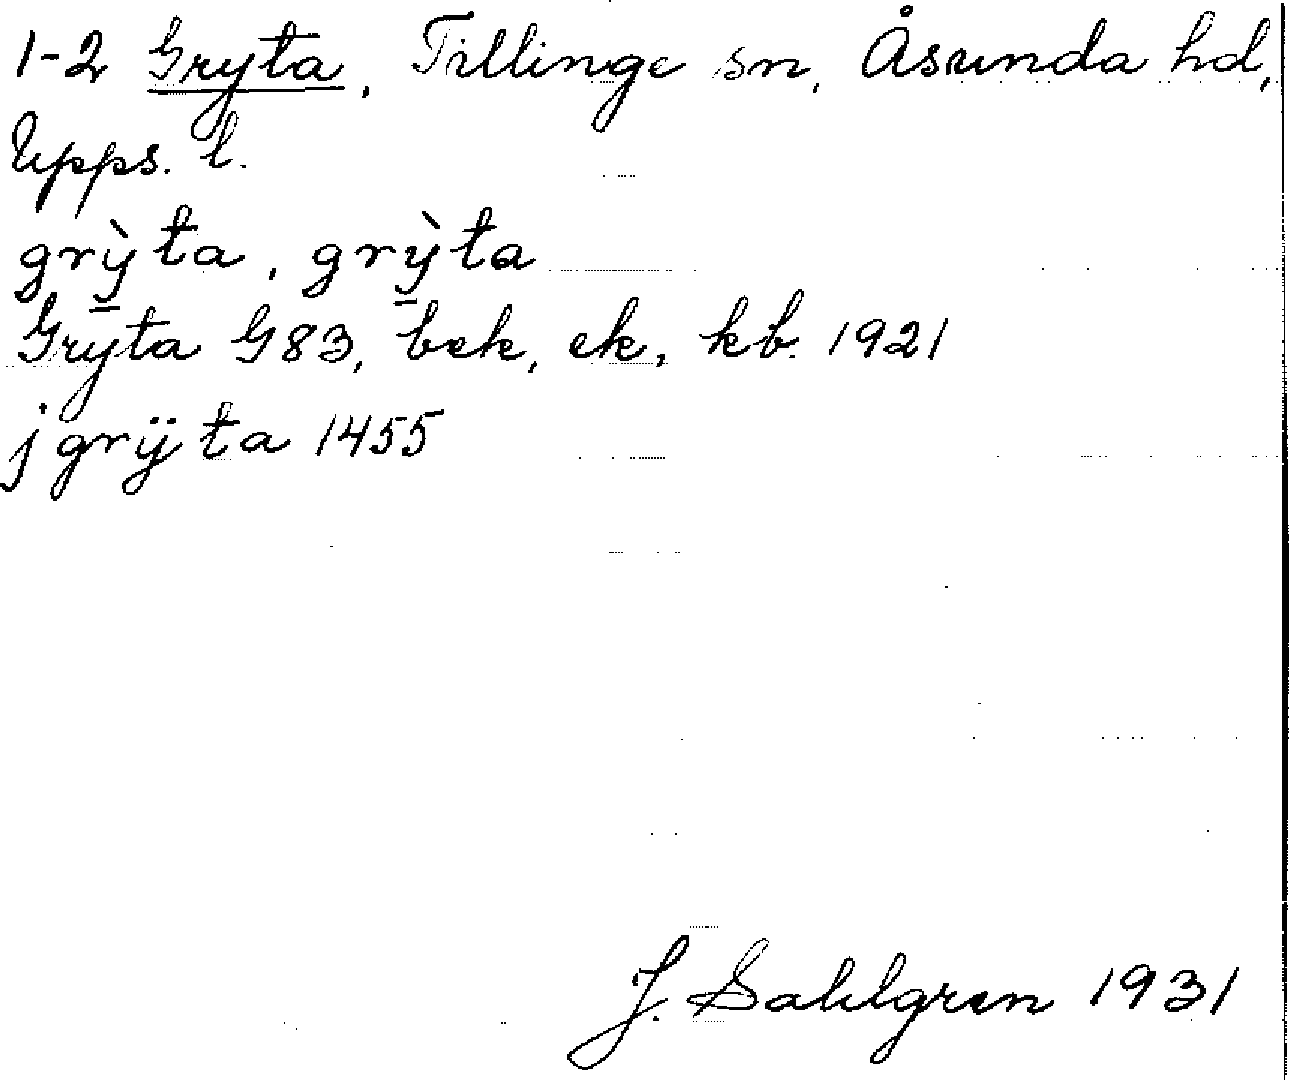 1-2 Gryta, Tillinge sn, Åsunda hd,
Upps. l.
grỳ̠ta, grỳ̠ta
Gryta G83, bek, ek, kb. 1921
j grÿta 1455
J. Sahlgren 1931